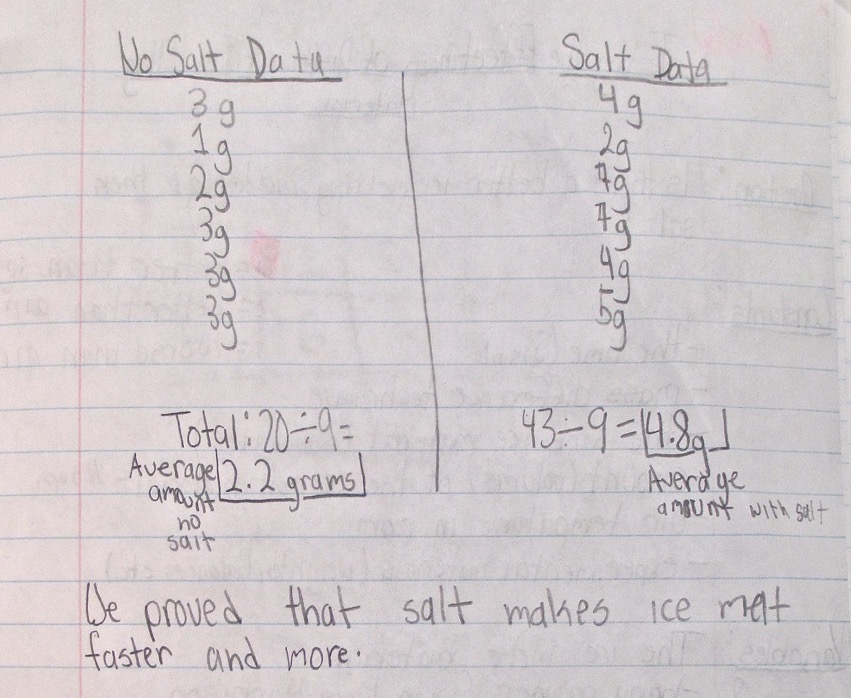 No Salt Data
3g
1g
2g
3g
3g
3g
Total: 20÷9=
Average amount no salt
2.2 grams
Salt Data
4g
2g
7g
7g
4g
5g
43÷9=4.8g
Average
amount with salt
We proved that salt makes ice melt
faster and more.